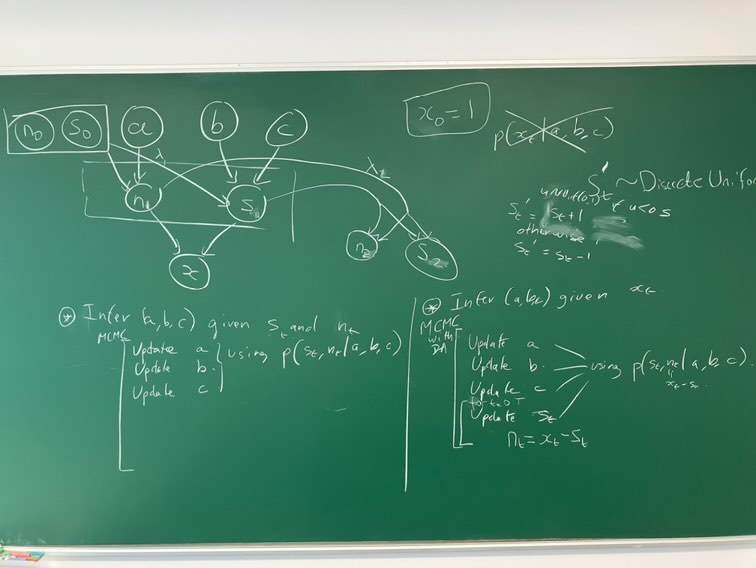 x₀ = 1
n₀ S₀ a b c
p(xₜ | a, b, c)
λ λ₂
n₁ S₁
n₂ S₂
x
S'ₜ ~ Discrete Unifor
if u<0.5
Sₜ' = Sₜ+1
otherwise
Sₜ' = Sₜ-1
⊛ Infer (a,b,c) given Sₜ and nₜ
MCMC
Update a
Update b.
Update c
using p(Sₜ, nₜ | a, b, c)
⊛ Infer (a,b,c) given xₜ
MCMC
with
DA
Update a
Update b.
Update c
for t=0:T
Update Sₜ
nₜ = xₜ - Sₜ
using p(Sₜ, nₜ | a, b, c)
xₜ-Sₜ